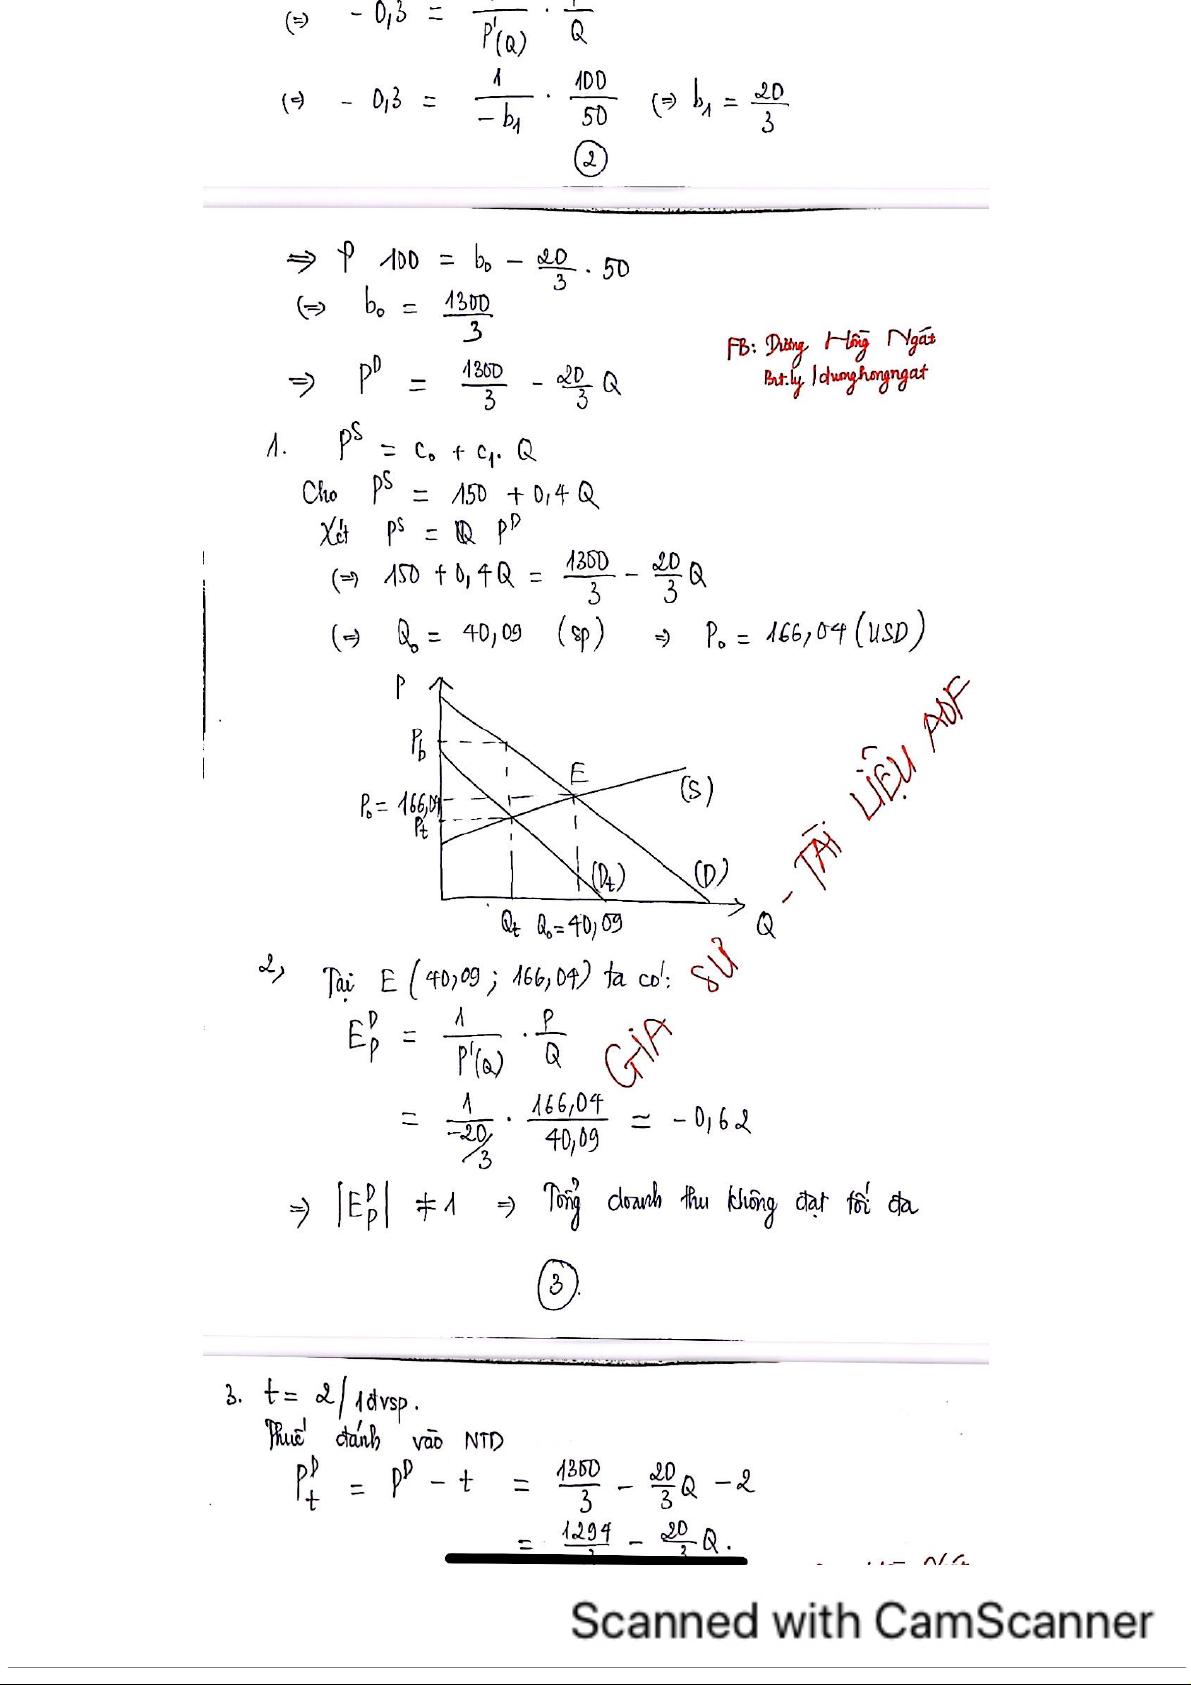 (=) - 0,3 = 1/P'(Q) . P/Q
(=) - 0,3 = 1/-b1 . 100/50 (=) b1 = 20/3
2
=> P 100 = b0 - 20/3 . 50
(=) b0 = 1300/3
FB: Dương Hồng Ngát
=> P^D = 1300/3 - 20/3 Q
Bit.ly/duonghongngat
1. P^S = c0 + c1. Q
Cho P^S = 150 + 0,4 Q
Xét P^S = P^D
(=) 150 + 0,4Q = 1300/3 - 20/3 Q
(=) Q0 = 40,09 (sp) => P0 = 166,04 (USD)
P
Pb
E
(S)
P0 = 166,04
Pt
(Dt) (D)
Qt Q0=40,09 Q
GIA SƯ - TÀI LIỆU AOF
2, Tại E (40,09 ; 166,04) ta có:
E^D_P = 1/P'(Q) . P/Q
= 1/(-20/3) . 166,04/40,09 ≃ - 0,62
=> |E^D_P| ≠ 1 => Tổng doanh thu không đạt tối đa
3.
3. t = 2/1đvsp.
Thuế đánh vào NTD
P^D_t = P^D - t = 1300/3 - 20/3 Q - 2
= 1294/3 - 20/3 Q.
Scanned with CamScanner